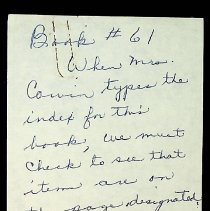 Book # 61
When Mrs.
Cowin types the
index for this
book, we must
check to see that
items are on
the page designated